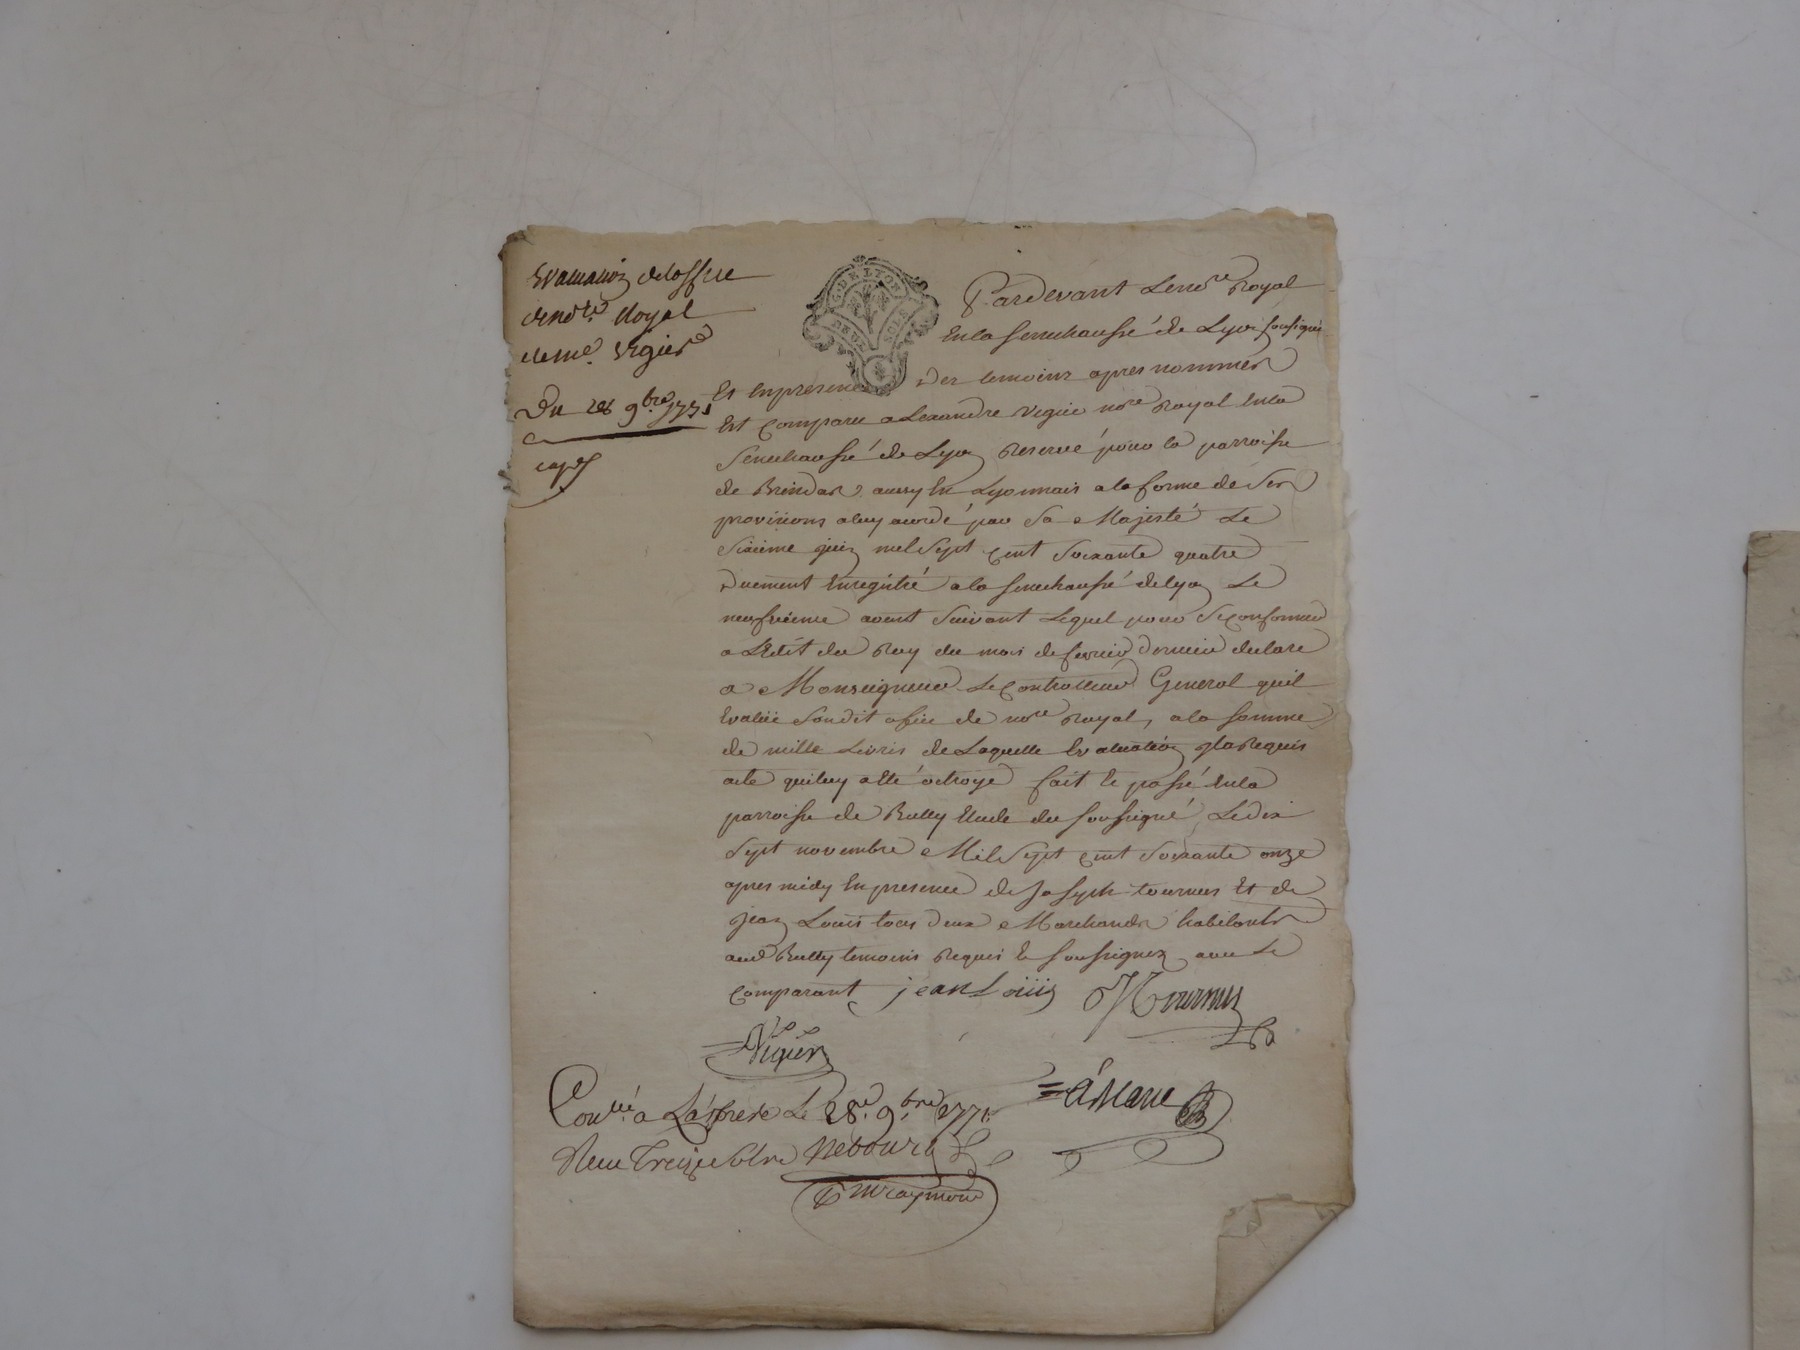 Evaluation deloffice
de nore. Royal
de me. Vigier
Du 9bre 1771
G. DE LYON
DEUX SOLS
Pardevant Le nore Royal
En la Senechaussé de Lyon sousigné
Et En presence Des temoins apres nommés
Est Comparu alexandre Vigier nore Royal En la
Senechaussé de Lyon Reservé pour la parroisse
de Brindas aussy En Lyonnais a la forme de Ses
provisions a luy acordé par Sa Majesté Le
Sixieme juin mel Sept Cent Soixante quatre
Duement Enregistré a la Senechaussé de lyon Le
neufvieme aoust Suivant Lequel pour Se Conformer
a L'Edit du Roy du mois de fevrier Dernier declare
a Monseigneur Le Controlleur General qu'il
Evalüe Son dit office de nore Royal, a la somme
de mille Livres de Laquelle Evaluation Il a Requis
acte qui luy a Eté octroyé fait Et passé En la
parroisse de Etude du soussigné Le dix
Sept novembre Mil Sept Cent Soixante onze
apres midy En presence de Joseph tournus Et de
jean Louis tous Deux Marchands habitants
aud temoins Requis Et soussignez avec Le
Comparant jean Loüis Jtournus
Vigier
Conllé a L'arbresle Le 28e. 9bre 1771.
Reçu Treize Sols